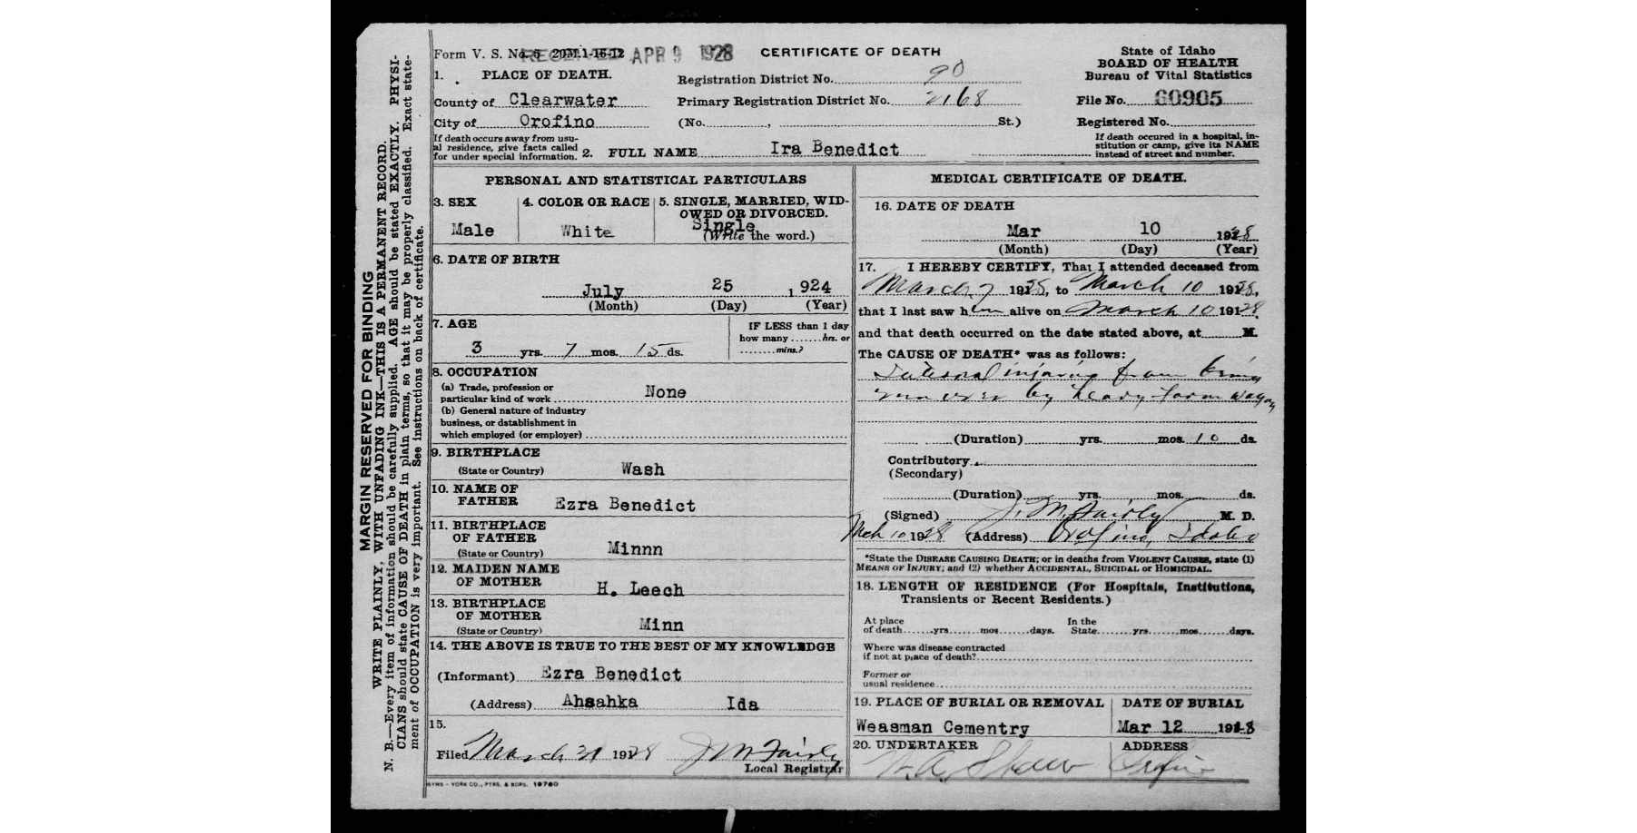 Form V. S. No. 5 20M 1-15-12 RECEIVED APR 9 1928 CERTIFICATE OF DEATH
State of Idaho
BOARD OF HEALTH
Bureau of Vital Statistics
File No. 60905
Registered No.
If death occured in a hospital, in-
stitution or camp, give its NAME
instead of street and number.
1. PLACE OF DEATH.
Registration District No. 90
County of Clearwater
Primary Registration District No. 2168
City of Orofino
(No. , St.)
If death occurs away from usu-
al residence, give facts called
for under special information.
2. FULL NAME Ira Benedict
MARGIN RESERVED FOR BINDING
WRITE PLAINLY, WITH UNFADING INK—THIS IS A PERMANENT RECORD.
N. B.—Every item of information should be carefully supplied. AGE should be stated EXACTLY. PHYSI-
CIANS should state CAUSE OF DEATH in plain terms, so that it may be properly classified. Exact state-
ment of OCCUPATION is very important. See instructions on back of certificate.
PERSONAL AND STATISTICAL PARTICULARS
3. SEX
Male
4. COLOR OR RACE
White
5. SINGLE, MARRIED, WID-
OWED OR DIVORCED.
Single
(Write the word.)
6. DATE OF BIRTH
July 25 , 924
(Month) (Day) (Year)
7. AGE
3 yrs. 7 mos. 15 ds.
IF LESS than 1 day
how many ...... hrs. or
........ mins.?
8. OCCUPATION
(a) Trade, profession or
particular kind of work None
(b) General nature of industry
business, or dstablishment in
which employed (or employer)
9. BIRTHPLACE
(State or Country) Wash
10. NAME OF
FATHER Ezra Benedict
11. BIRTHPLACE
OF FATHER
(State or Country) Minnn
12. MAIDEN NAME
OF MOTHER H. Leech
13. BIRTHPLACE
OF MOTHER
(State or Country) Minn
14. THE ABOVE IS TRUE TO THE BEST OF MY KNOWLEDGE
(Informant) Ezra Benedict
(Address) Ahsahka Ida
15.
Filed March 31 1928 J M Fairly
Local Registrar
SYMS - YORK CO., PTRS. & BDRS. 18760
MEDICAL CERTIFICATE OF DEATH.
16. DATE OF DEATH
Mar 10 1928
(Month) (Day) (Year)
17. I HEREBY CERTIFY, That I attended deceased from
March 7 1928, to March 10 1928,
that I last saw him alive on March 10 1928
and that death occurred on the date stated above, at M.
The CAUSE OF DEATH* was as follows:
Internal injuries from being
run over by heavy farm wagon
(Duration) yrs. mos. 10 ds.
Contributory
(Secondary)
(Duration) yrs. mos. ds.
(Signed) J. M. Fairly M. D.
Mch 10 1928 (Address) Orofino, Idaho
*State the DISEASE CAUSING DEATH; or in deaths from VIOLENT CAUSES, state (1)
MEANS OF INJURY; and (2) whether ACCIDENTAL, SUICIDAL or HOMICIDAL.
18. LENGTH OF RESIDENCE (For Hospitals, Institutions,
Transients or Recent Residents.)
At place
of death......yrs.......mos.......days.
In the
State.......yrs.......mos.......days.
Where was disease contracted
if not at place of death?
Former or
usual residence
19. PLACE OF BURIAL OR REMOVAL
Weasman Cementry
DATE OF BURIAL
Mar 12 1928
20. UNDERTAKER
W. A. Shaw
ADDRESS
Orofino